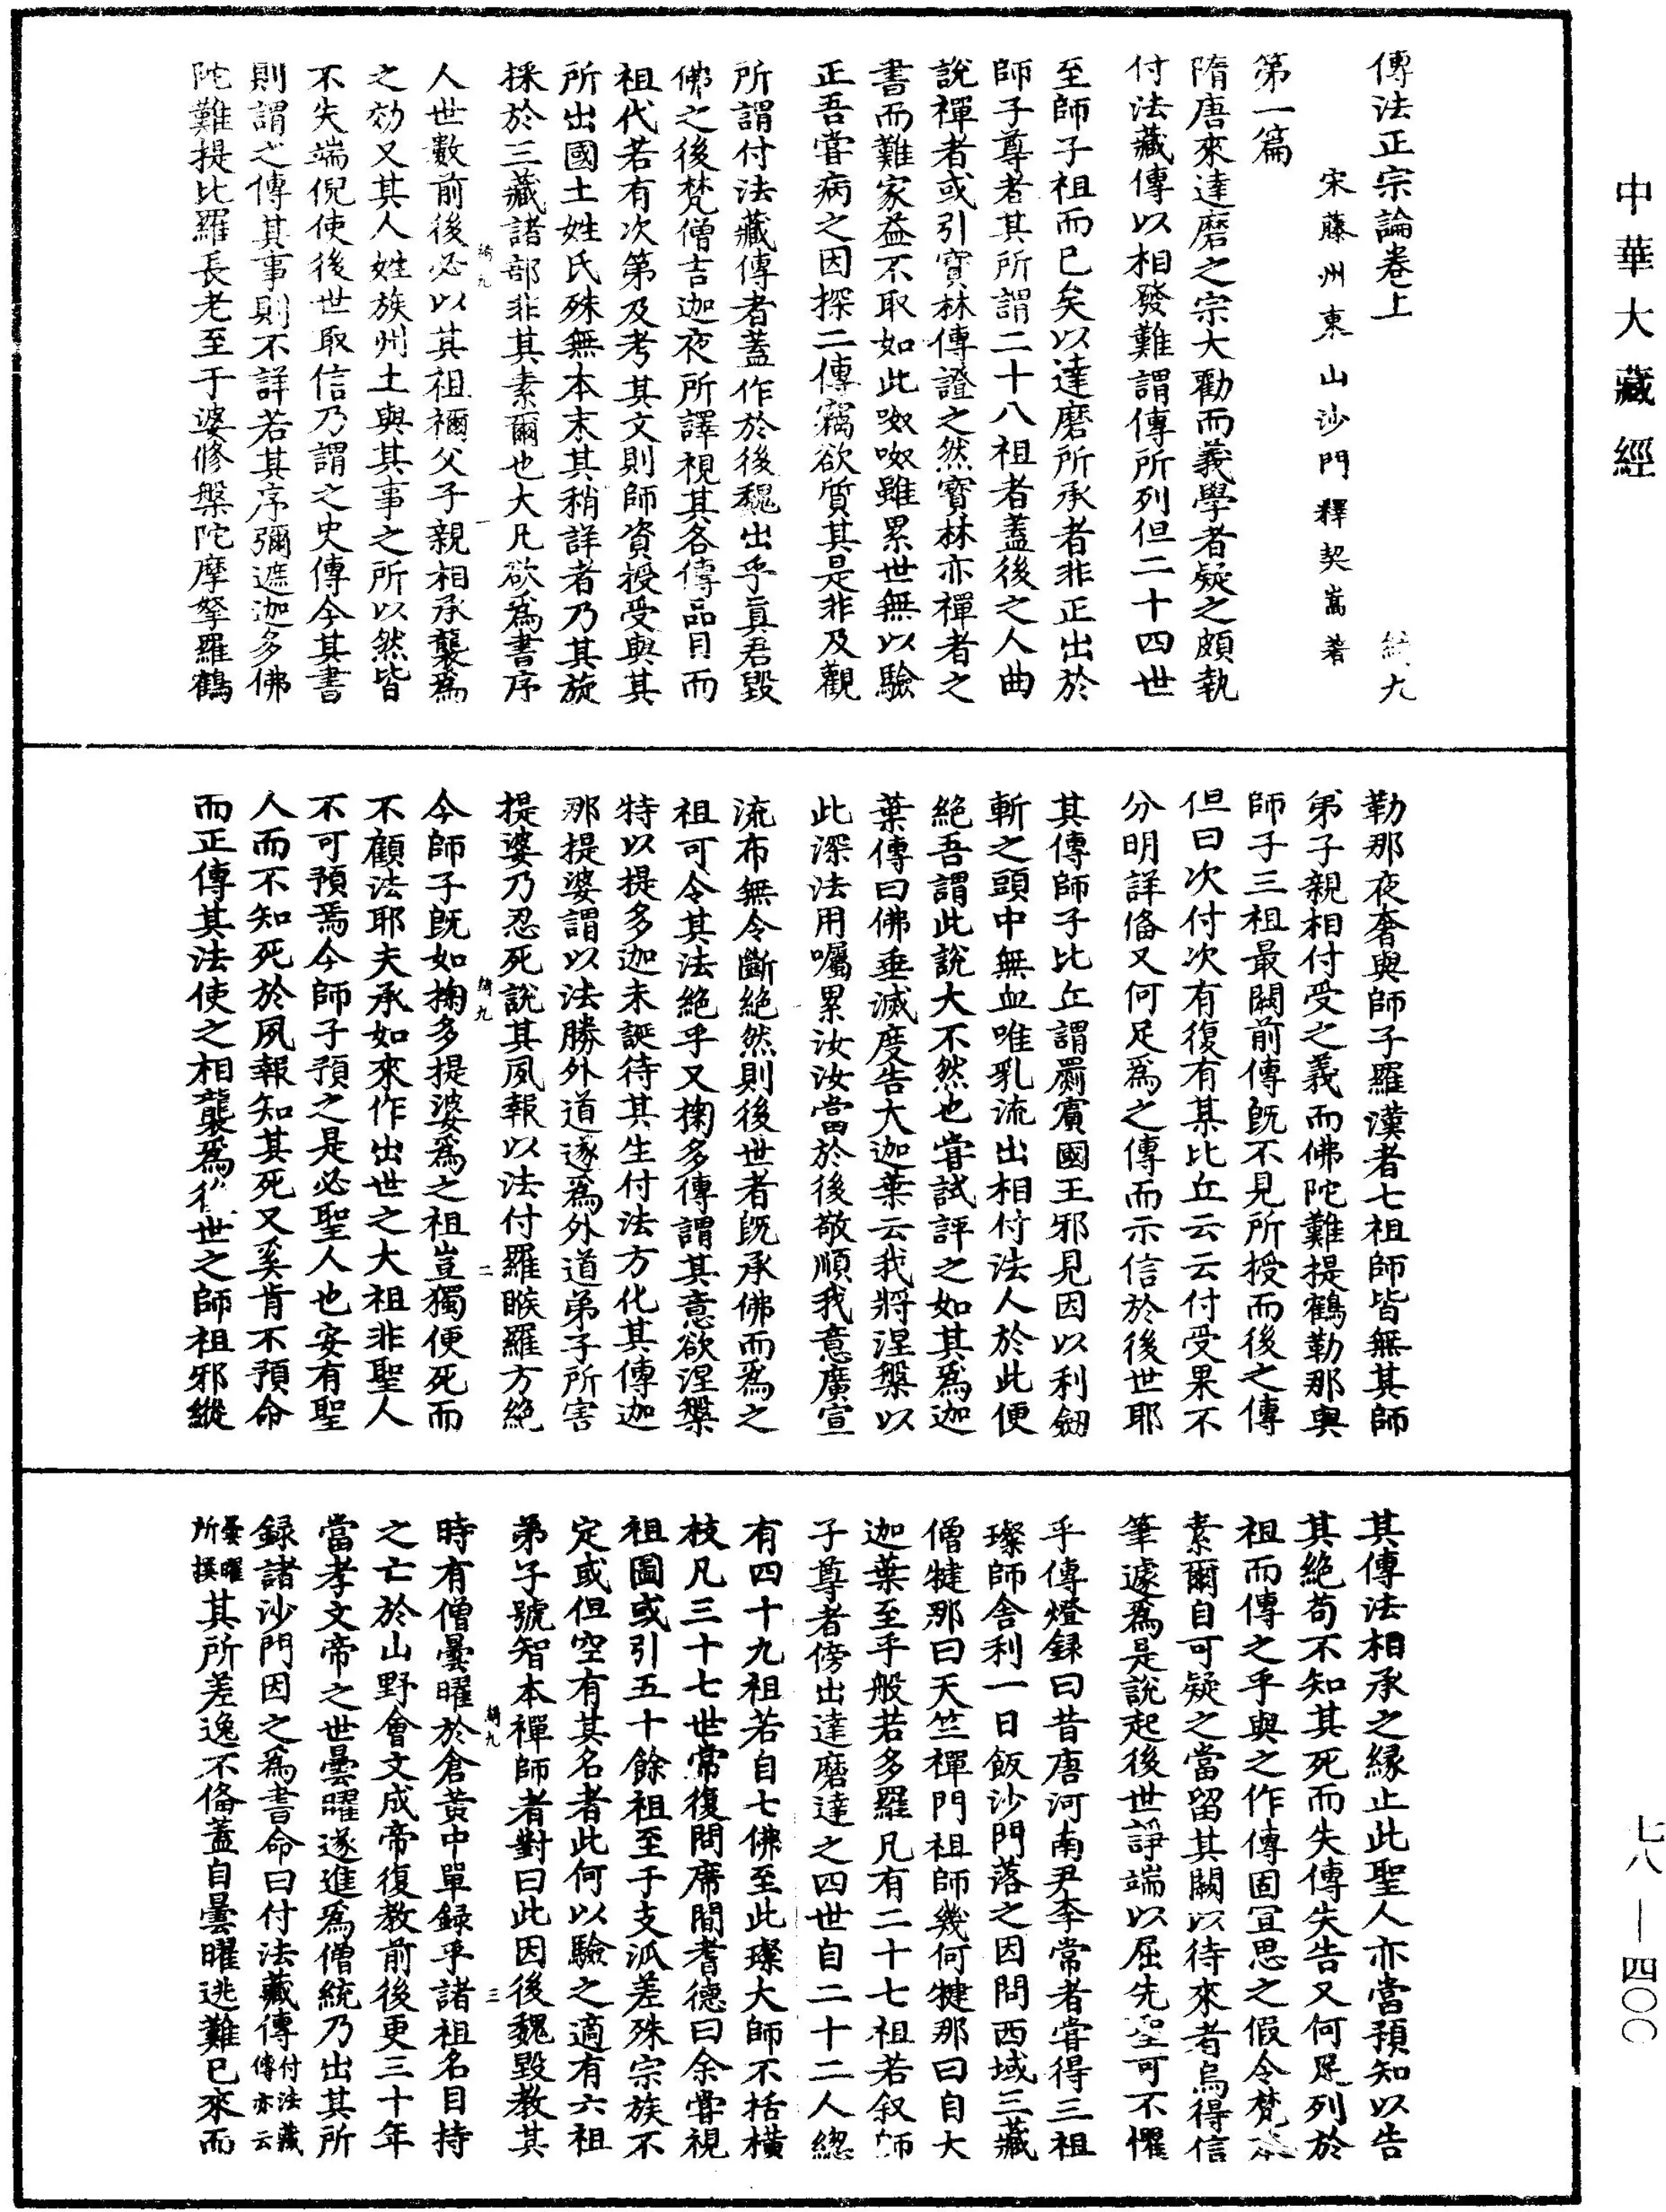 中華大藏經
傳法正宗論卷上　綺九
宋藤州東山沙門釋契嵩著
第一篇
隋唐來達磨之宗大勸而義學者疑之頗執
付法藏傳以相發難謂傳所列但二十四世
至師子祖而已矣以達磨所承者非正出於
師子尊者其所謂二十八祖者蓋後之人曲
說禪者或引寶林傳證之然寶林亦禪者之
書而難家益不取如此呶呶雖累世無以驗
正吾嘗病之因探二傳竊欲質其是非及觀
所謂付法藏傳者蓋作於後魏出乎真君毀
佛之後梵僧吉迦夜所譯視其各傳品目而
祖代若有次第及考其文則師資授受與其
所出國土姓氏殊無本末其稍詳者乃其旋
採於三藏諸部非其素爾也大凡欲爲書序
綺九　一
人世數前後必以其祖禰父子親相承襲爲
之効又其人姓族州土與其事之所以然皆
不失端倪使後世取信乃謂之史傳今其書
則謂之傳其事則不詳若其序彌遮迦多佛
陀難提比羅長老至于婆修槃陀摩拏羅鶴
勒那夜奢與師子羅漢者七祖師皆無其師
弟子親相付受之義而佛陀難提鶴勒那與
師子三祖最闕前傳旣不見所授而後之傳
但曰次付次有復有某比丘云云付受果不
分明詳俻又何足爲之傳而示信於後世耶
其傳師子比丘謂罽賓國王邪見因以利劒
斬之頭中無血唯乳流出相付法人於此便
絶吾謂此說大不然也嘗試評之如其爲迦
葉傳曰佛垂滅度告大迦葉云我將涅槃以
此深法用囑累汝汝當於後敬順我意廣宣
流布無令斷絶然則後世者旣承佛而爲之
祖可令其法絶乎又掬多傳謂其意欲涅槃
特以提多迦未誕待其生付法方化其傳迦
那提婆謂以法勝外道遂爲外道弟子所害
提婆乃忍死說其夙報以法付羅睺羅方絶
綺九　二
今師子旣如掬多提婆爲之祖豈獨便死而
不顧法耶夫承如來作出世之大祖非聖人
不可預焉今師子預之是必聖人也安有聖
人而不知死於夙報知其死又奚肯不預命
而正傳其法使之相襲爲後世之師祖邪縱
其傳法相承之緣止此聖人亦當預知以告
其絶苟不知其死而失傳失告又何足列於
祖而傳之乎與之作傳固宜思之假令梵本
素爾自可疑之當留其闕以待來者烏得信
筆遽爲是說起後世諍端以屈先聖可不懼
乎傳燈録曰昔唐河南尹李常者嘗得三祖
璨師舍利一日飯沙門落之因問西域三藏
僧犍那曰天竺禪門祖師幾何犍那曰自大
迦葉至乎般若多羅凡有二十七祖若叙師
子尊者傍出達磨達之四世自二十二人緫
有四十九祖若自七佛至此璨大師不括橫
枝凡三十七世常復問席間耆德曰余嘗視
祖圖或引五十餘祖至于支派差殊宗族不
定或但空有其名者此何以驗之適有六祖
弟子號智本禪師者對曰此因後魏毀教其
綺九　三
時有僧曇曜於倉黃中單録乎諸祖名目持
之亡於山野會文成帝復教前後更三十年
當孝文帝之世曇曜遂進爲僧統乃出其所
録諸沙門因之爲書命曰付法藏傳付法藏傳亦云
曇曜所撰其所差逸不俻蓋自曇曜逃難已來而
七八—四〇〇